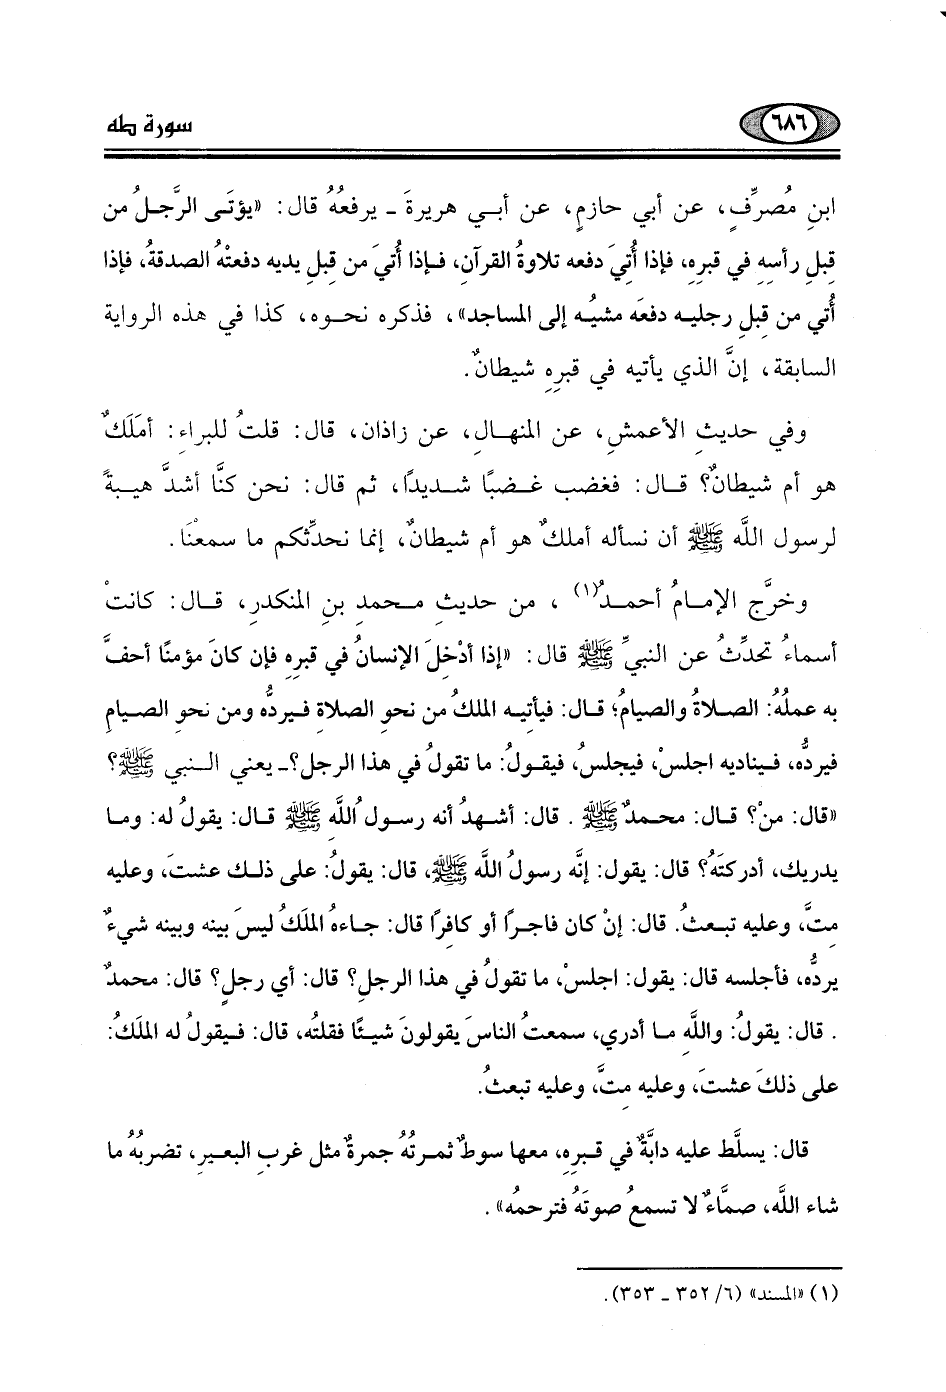 ٦٨٦
سورة طه
ابنِ مُصرِّفٍ، عن أبي حازمٍ، عن أبـي هريرةَ ـ يرفعُهُ قال: «يؤتَـى الرَّجـلُ من
قِبلِ رأسِهِ في قبرِهِ، فإذا أُتيَ دفعه تلاوةُ القرآنِ، فـإذا أُتيَ من قِبلِ يديه دفعتْهُ الصدقةُ، فإذا
أُتي من قِبلِ رجليـه دفعَه مشيُـه إلى المساجد»، فذكره نحـوه، كذا في هذه الروايةِ
السابقة، إنَّ الذي يأتيه في قبرِهِ شيطانٌ.
وفي حديثِ الأعمشِ، عن المنهـالِ، عن زاذان، قال: قلتُ للبراءِ: أملَكٌ
هو أم شيطانٌ؟ قـال: فغضب غـضبًا شـديدًا، ثم قال: نحن كنَّا أشدَّ هيـبةً
لرسول اللَّه ﷺ أن نسأله أملكٌ هو أم شيطانٌ، إنما نحدثِّكم ما سمعْنَا.
وخرَّج الإمـامُ أحمـدُ(١) ، من حديثِ محمدِ بنِ المنكدرِ، قـال: كانتْ
أسماءُ تحدِّثُ عن النبيِّ ﷺ قال: «إذا أدْخلَ الإنسانُ في قبرِه فإن كانَ مؤمنًا أحفَّ
به عملُهُ: الصـلاةُ والصيامُ؛ قـال: فيأتيـه الملكُ من نحوِ الصلاةِ فـيردُّه ومن نحوِ الصيـامِ
فيردُّه، فـيناديه اجلسْ، فيجلسُ، فيقـولُ: ما تقولُ في هذا الرجل؟ـ يعني الـنبي ﷺ؟
«قال: منْ؟ قـال: محمـدٌ ﷺ . قال: أشهـدُ أنه رسـولُ اللَّه ﷺ قـال: يقولُ له: ومـا
يدريك، أدركتَهُ؟ قال: يقول: إنَّه رسولُ اللَّه ﷺ، قال: يقولُ: على ذلـك عشـتَ، وعليه
متَّ، وعليه تبـعثُ. قال: إنْ كان فاجـرًا أو كافرًا قال: جـاءهُ الملَكُ ليسَ بينه وبينه شيءٌ
يردُّه، فأجلسه قال: يقول: اجلسْ، ما تقولُ في هذا الرجل؟ قال: أي رجلٍ؟ قال: محمدٌ
. قال: يقولُ: واللَّه مـا أدري، سمعتُ الناسَ يقولونَ شيـئًا فقلتُه، قال: فـيقولُ له الملَكُ:
على ذلكَ عشتَ، وعليه متَّ، وعليه تبعثُ.
قال: يسلَّط عليه دابَّةٌ في قبرِه، معها سوطٌ ثمرتُهُ جمرةٌ مثل غربِ البعيرِ، تضربُهُ ما
شاء اللَّه، صمَّاءُ لا تسمعُ صوتَهُ فترحمُه» .
(١) «المسند» (٦/ ٣٥٢ ـ ٣٥٣).